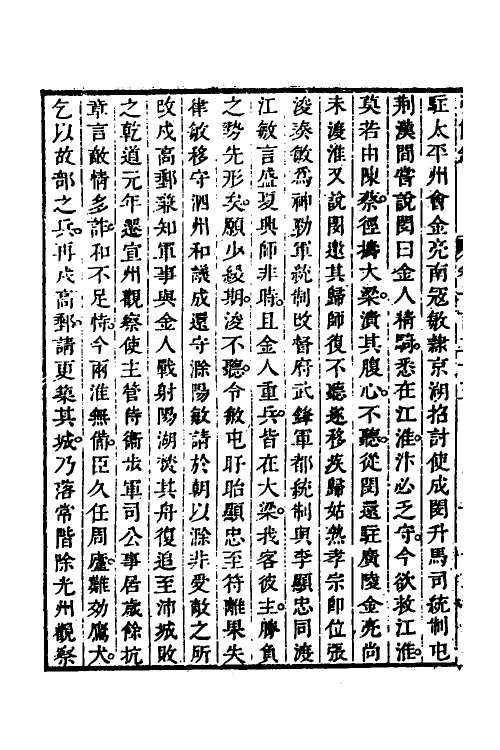 駐太平州會金亮南寇敏隸京湖招討使成閔升馬司統制屯
荆漢間嘗說閔曰金人精騎悉在江淮汴必乏守今欲救江淮
莫若由陳蔡徑擣大梁潰其腹心不聽從閔還駐廣陵金亮尚
未渡淮又說閔邀其歸師復不聽遂移疾歸姑熟孝宗卽位張
浚奏敏爲神勁軍統制改督府武鋒軍都統制與李顯忠同渡
江敏言盛夏興師非時且金人重兵皆在大梁我客彼主勝負
之勢先形矣願少緩期浚不聽令敏屯盱眙顯忠至符離果失
律敏移守泗州和議成還守滁陽敏請於朝以滁非受敵之所
改戍高郵兼知軍事與金人戰射陽湖焚其舟復追至沛城敗
之乾道元年遷宣州觀察使主管侍衛步軍司公事居歲餘抗
章言敵情多詐和不足恃今兩淮無備臣久任周廬難効鷹犬
乞以故部之兵再戍高郵請更築其城乃落常階除光州觀察